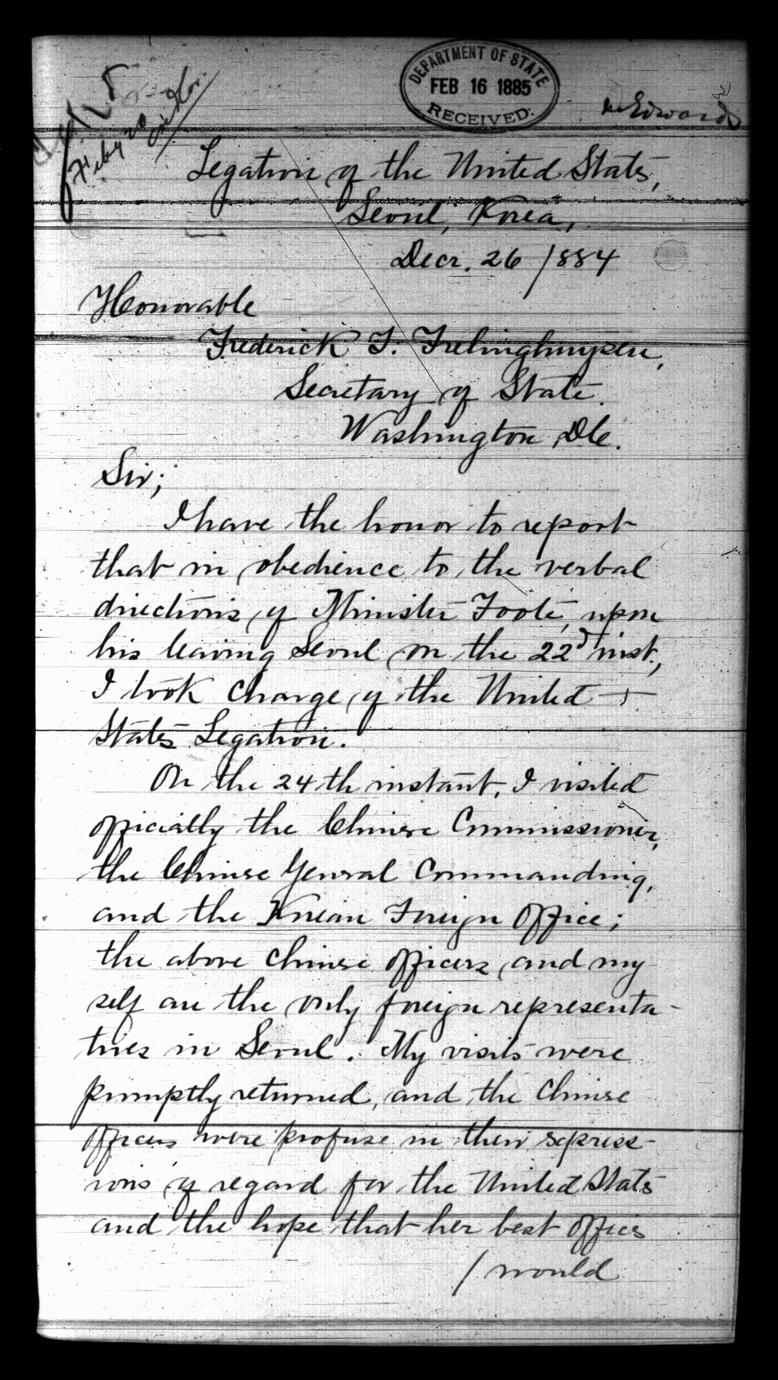 DEPARTMENT OF STATE
FEB 16 1885
RECEIVED.
Mr Edwards
Feby 20
Legation of the United States,
Seoul, Korea,
Decr. 26 /884
Honorable
Frederick T. Frelinghuysen,
Secretary of State.
Washington DC.
Sir;
I have the honor to report
that in obedience to the verbal
directions of Minister Foote, upon
his leaving Seoul on the 22d inst,
I took charge of the United
States Legation.
On the 24th instant, I visited
officially the Chinese Commissioner,
the Chinese General Commanding,
and the Korean Foreign Office;
the above Chinese officers and my
self are the only foreign representa-
tives in Seoul. My visits were
promptly returned, and the Chinese
officers were profuse in their express-
ions of regard for the United States
and the hope that her best offices
/would